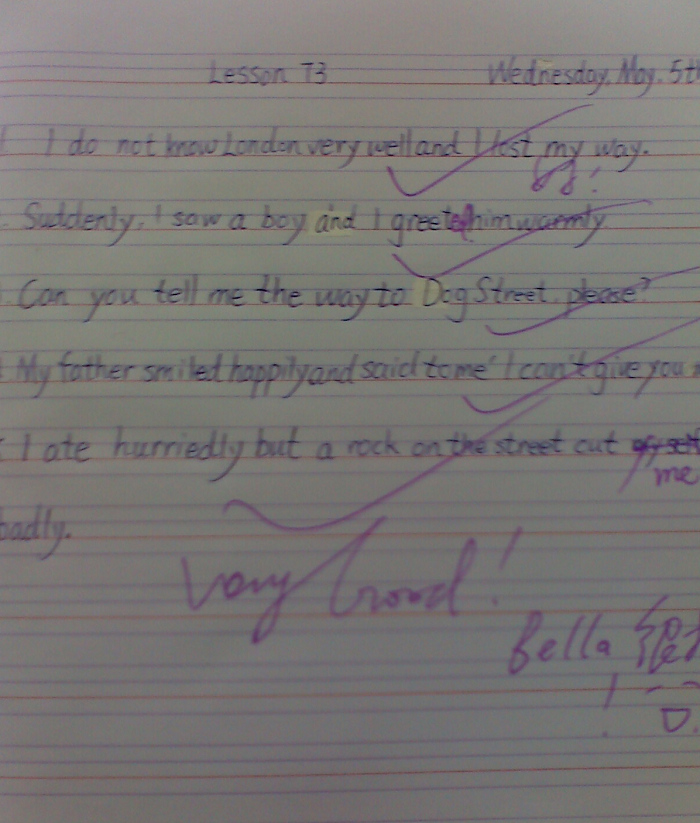 Lesson 73 Wednesday. May. 5th
I do not know London very well and I lost my way.
Suddenly, I saw a boy and I greeted him warmly
Can you tell me the way to Dog Street, please?
My father smiled happily and said to me' I can't give you
I ate hurriedly but a rock on the street cut
me
badly.
Very Good!
Bella 很
!